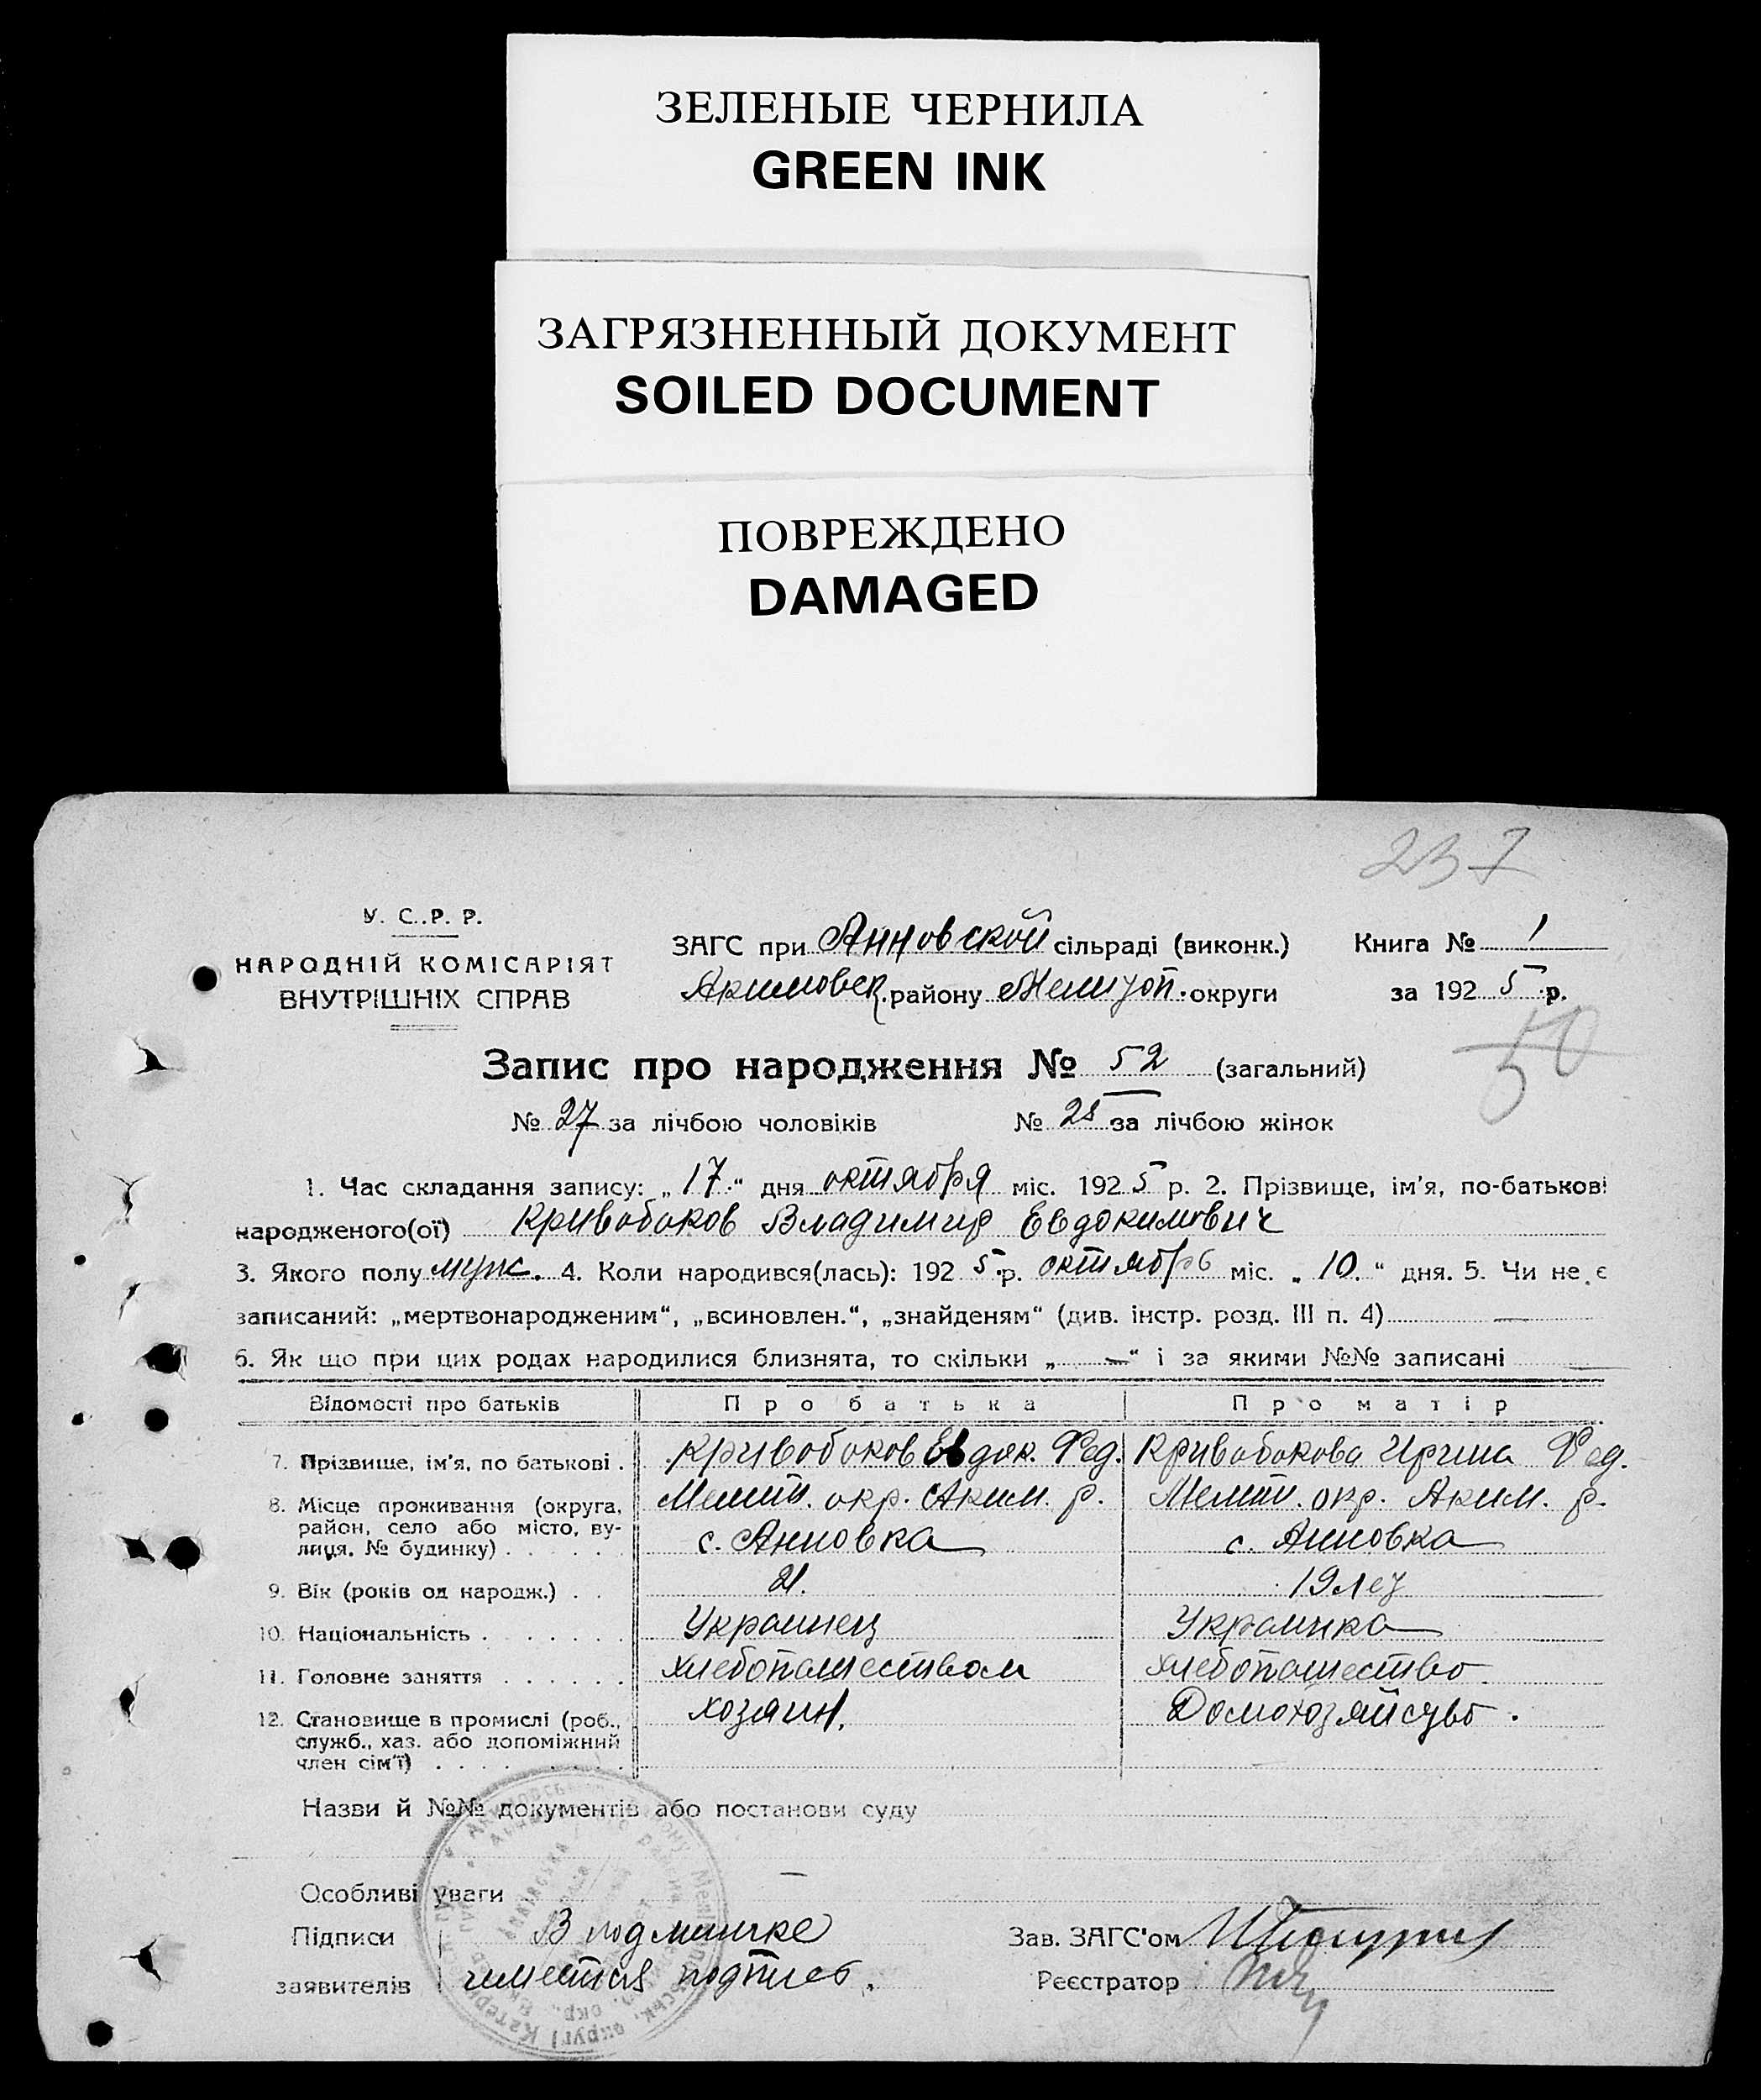 ЗЕЛЕНЫЕ ЧЕРНИЛА
GREEN INK
ЗАГРЯЗНЕННЫЙ ДОКУМЕНТ
SOILED DOCUMENT
ПОВРЕЖДЕНО
DAMAGED
237
У. С. Р. Р.
НАРОДНІЙ КОМІСАРІЯТ
ВНУТРІШНІХ СПРАВ
ЗАГС при Анновской сільраді (виконк.) Книга № 1
Акимовск. району Мелитоп. округи за 1925 р.
50
Запис про народження № 52 (загальний)
№ 27 за лічбою чоловіків № 25 за лічбою жінок
1. Час складання запису: „17“ дня октября міс. 1925 р. 2. Прізвище, ім'я, по-батькові
народженого(ої) Кривобоков Владимир Евдокимович
3. Якого полу муж. 4. Коли народився(лась): 1925 р. октябрь міс. „10.“ дня. 5. Чи не є
записаний: „мертвонародженим“, „всиновлен.“, „знайденям“ (див. інстр. розд. III п. 4) —
6. Як що при цих родах народилися близнята, то скільки „—“ і за якими №№ записані —
Відомості про батьків Про батька Про матір
7. Прізвище, ім'я, по батькові . Кривобоков Евдок. Фед. Кривобокова Ирина Фед.
8. Місце проживання (округа, Мелит. окр. Аким. р. Мелит. окр. Аким. р.
район, село або місто, ву- с. Анновка с. Анновка
лиця, № будинку) . . . . . .
9. Вік (років од народж.) . . 21. 19 лет
10. Національність . . . . . . Украинец Украинка
11. Головне заняття . . . . . . хлебопашеством хлебопашество
12. Становище в промислі (роб., хозяин. Домохозяйство.
служб., хаз. або допоміжний
член сім'ї) . . . . . . . .
Назви й №№ документів або постанови суду
Особливі уваги —
Підписи В подлинике Зав. ЗАГС'ом
заявителів имеется подпись. Реєстратор